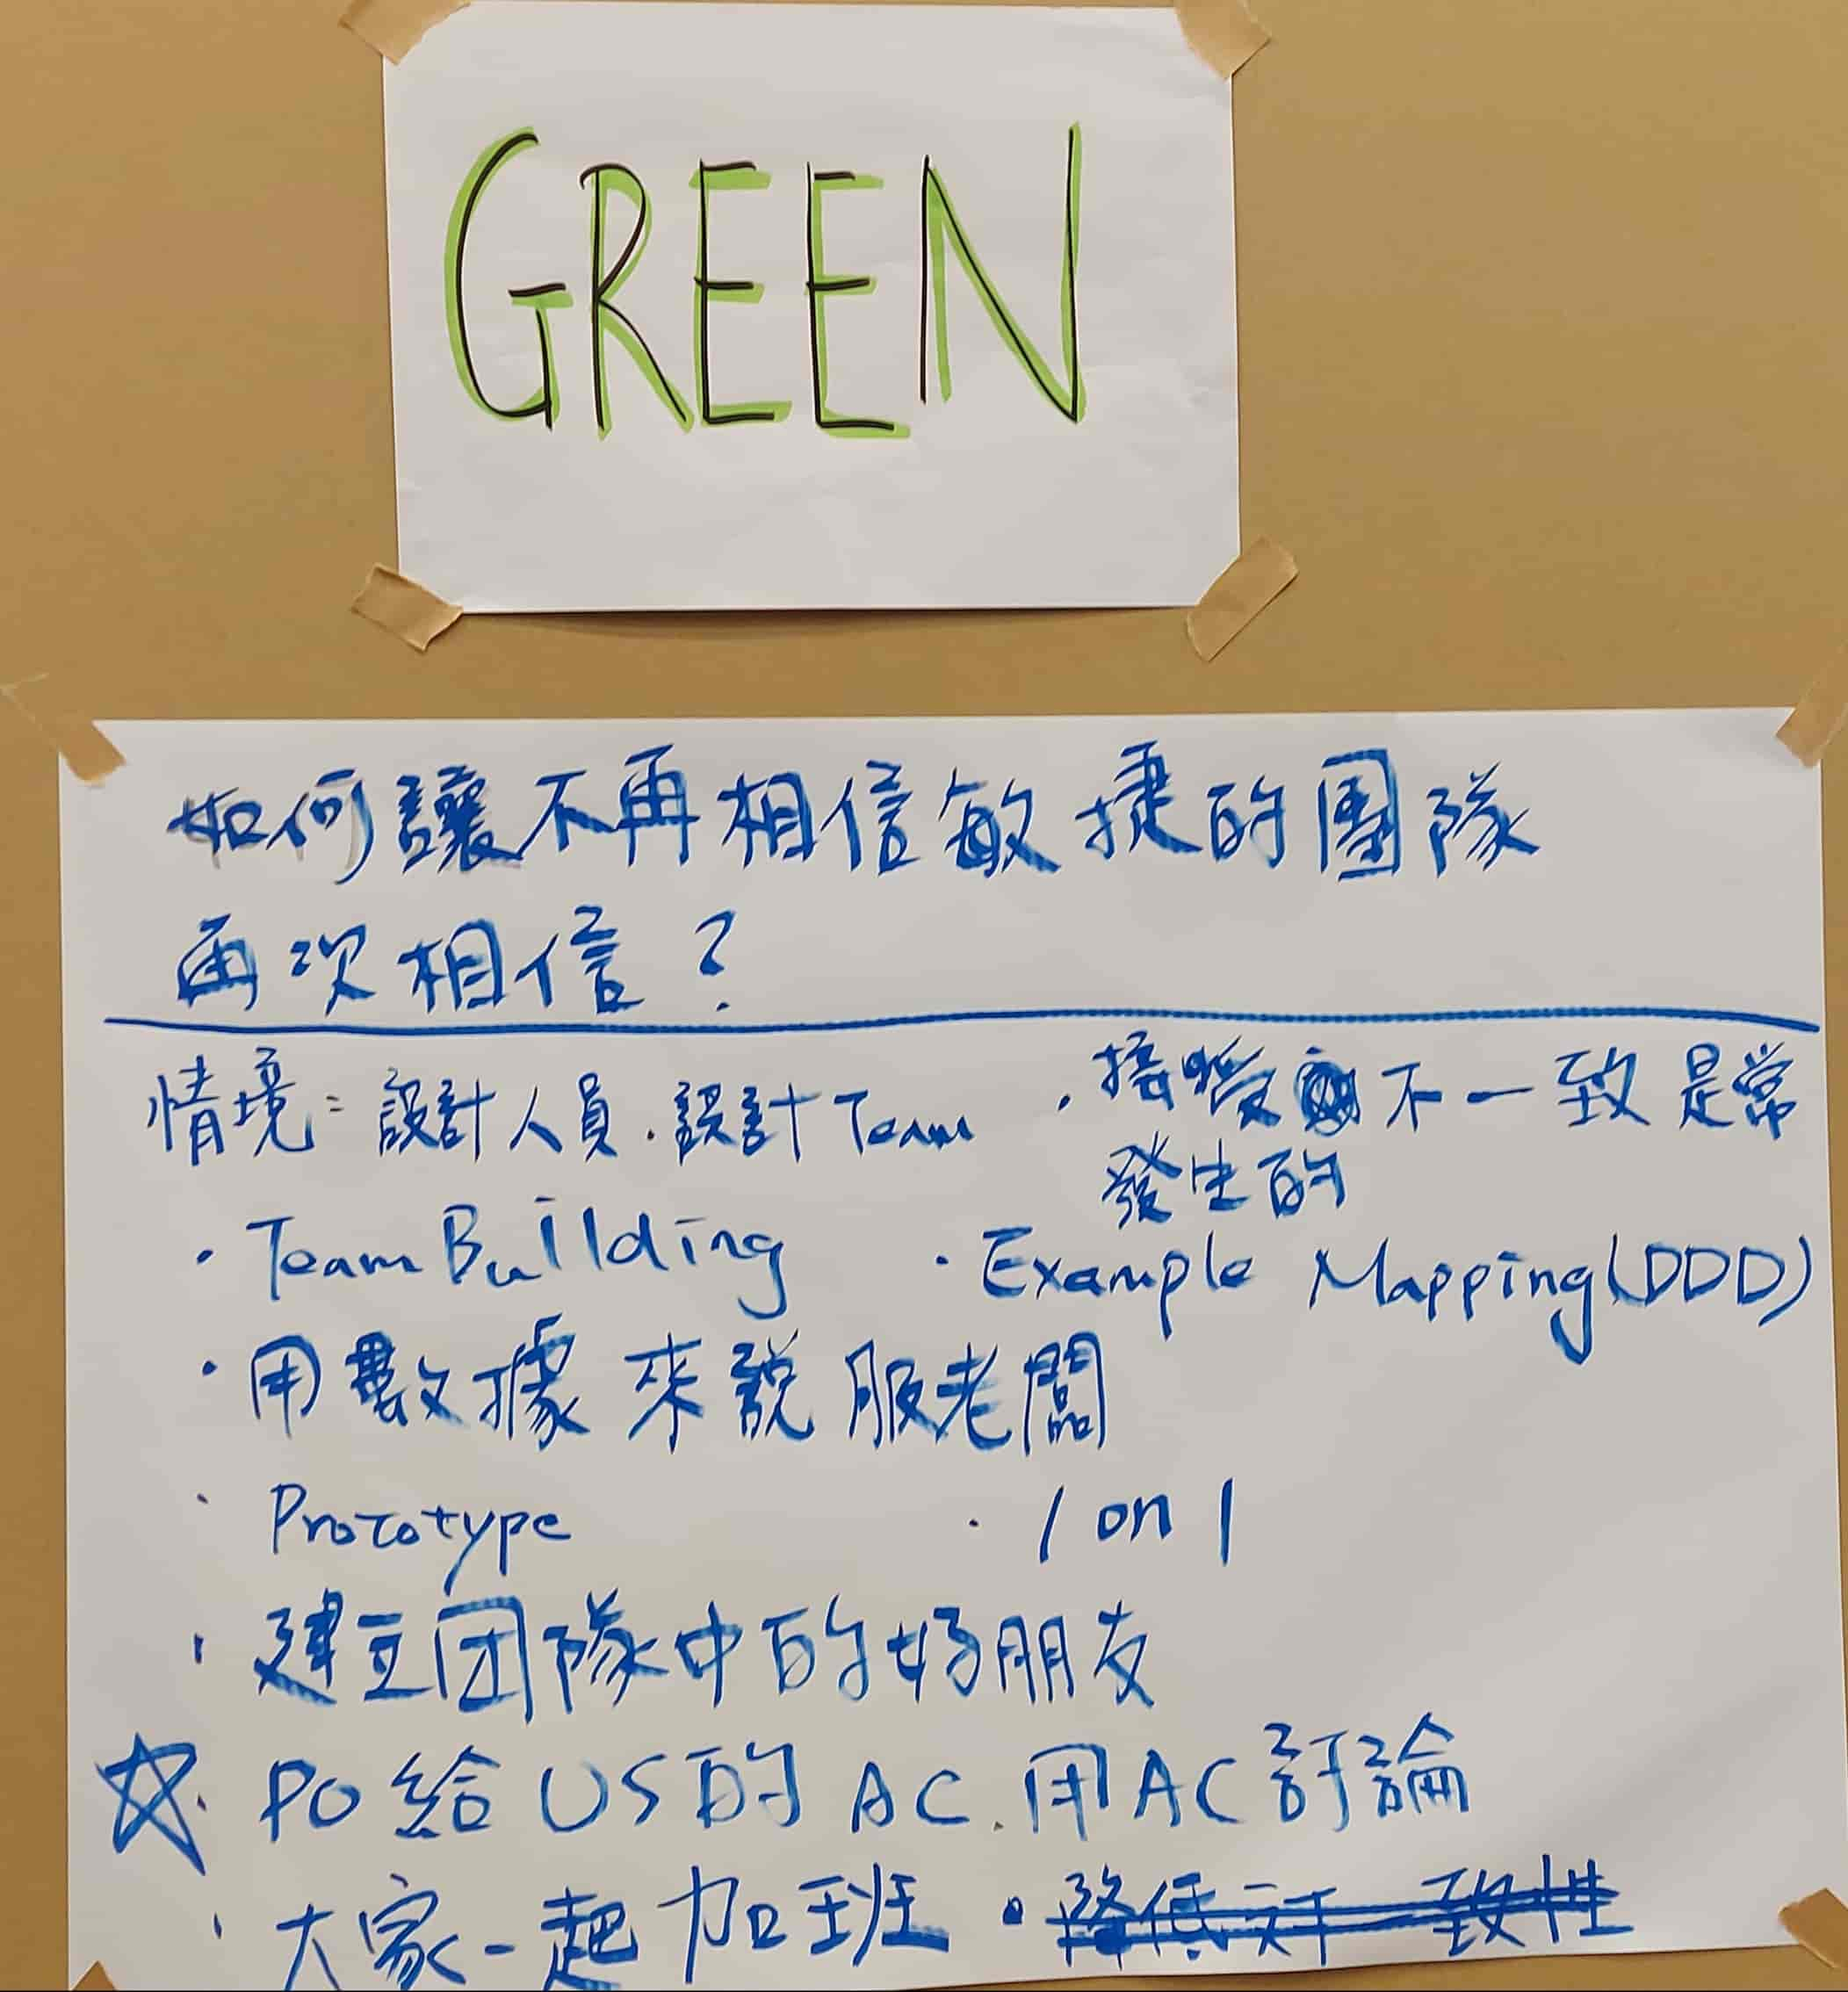 GREEN
如何讓不再相信敏捷的團隊
再次相信?
情境:設計人員.設計Team
・接受不一致是常
發生的
・Team Building
・Example Mapping(DDD)
・用數據來說服老闆
・Prototype
・1 on 1
・建立団隊中的好朋友
☆・PO給US的AC.用AC討論
・大家一起加班
・降低 一致性